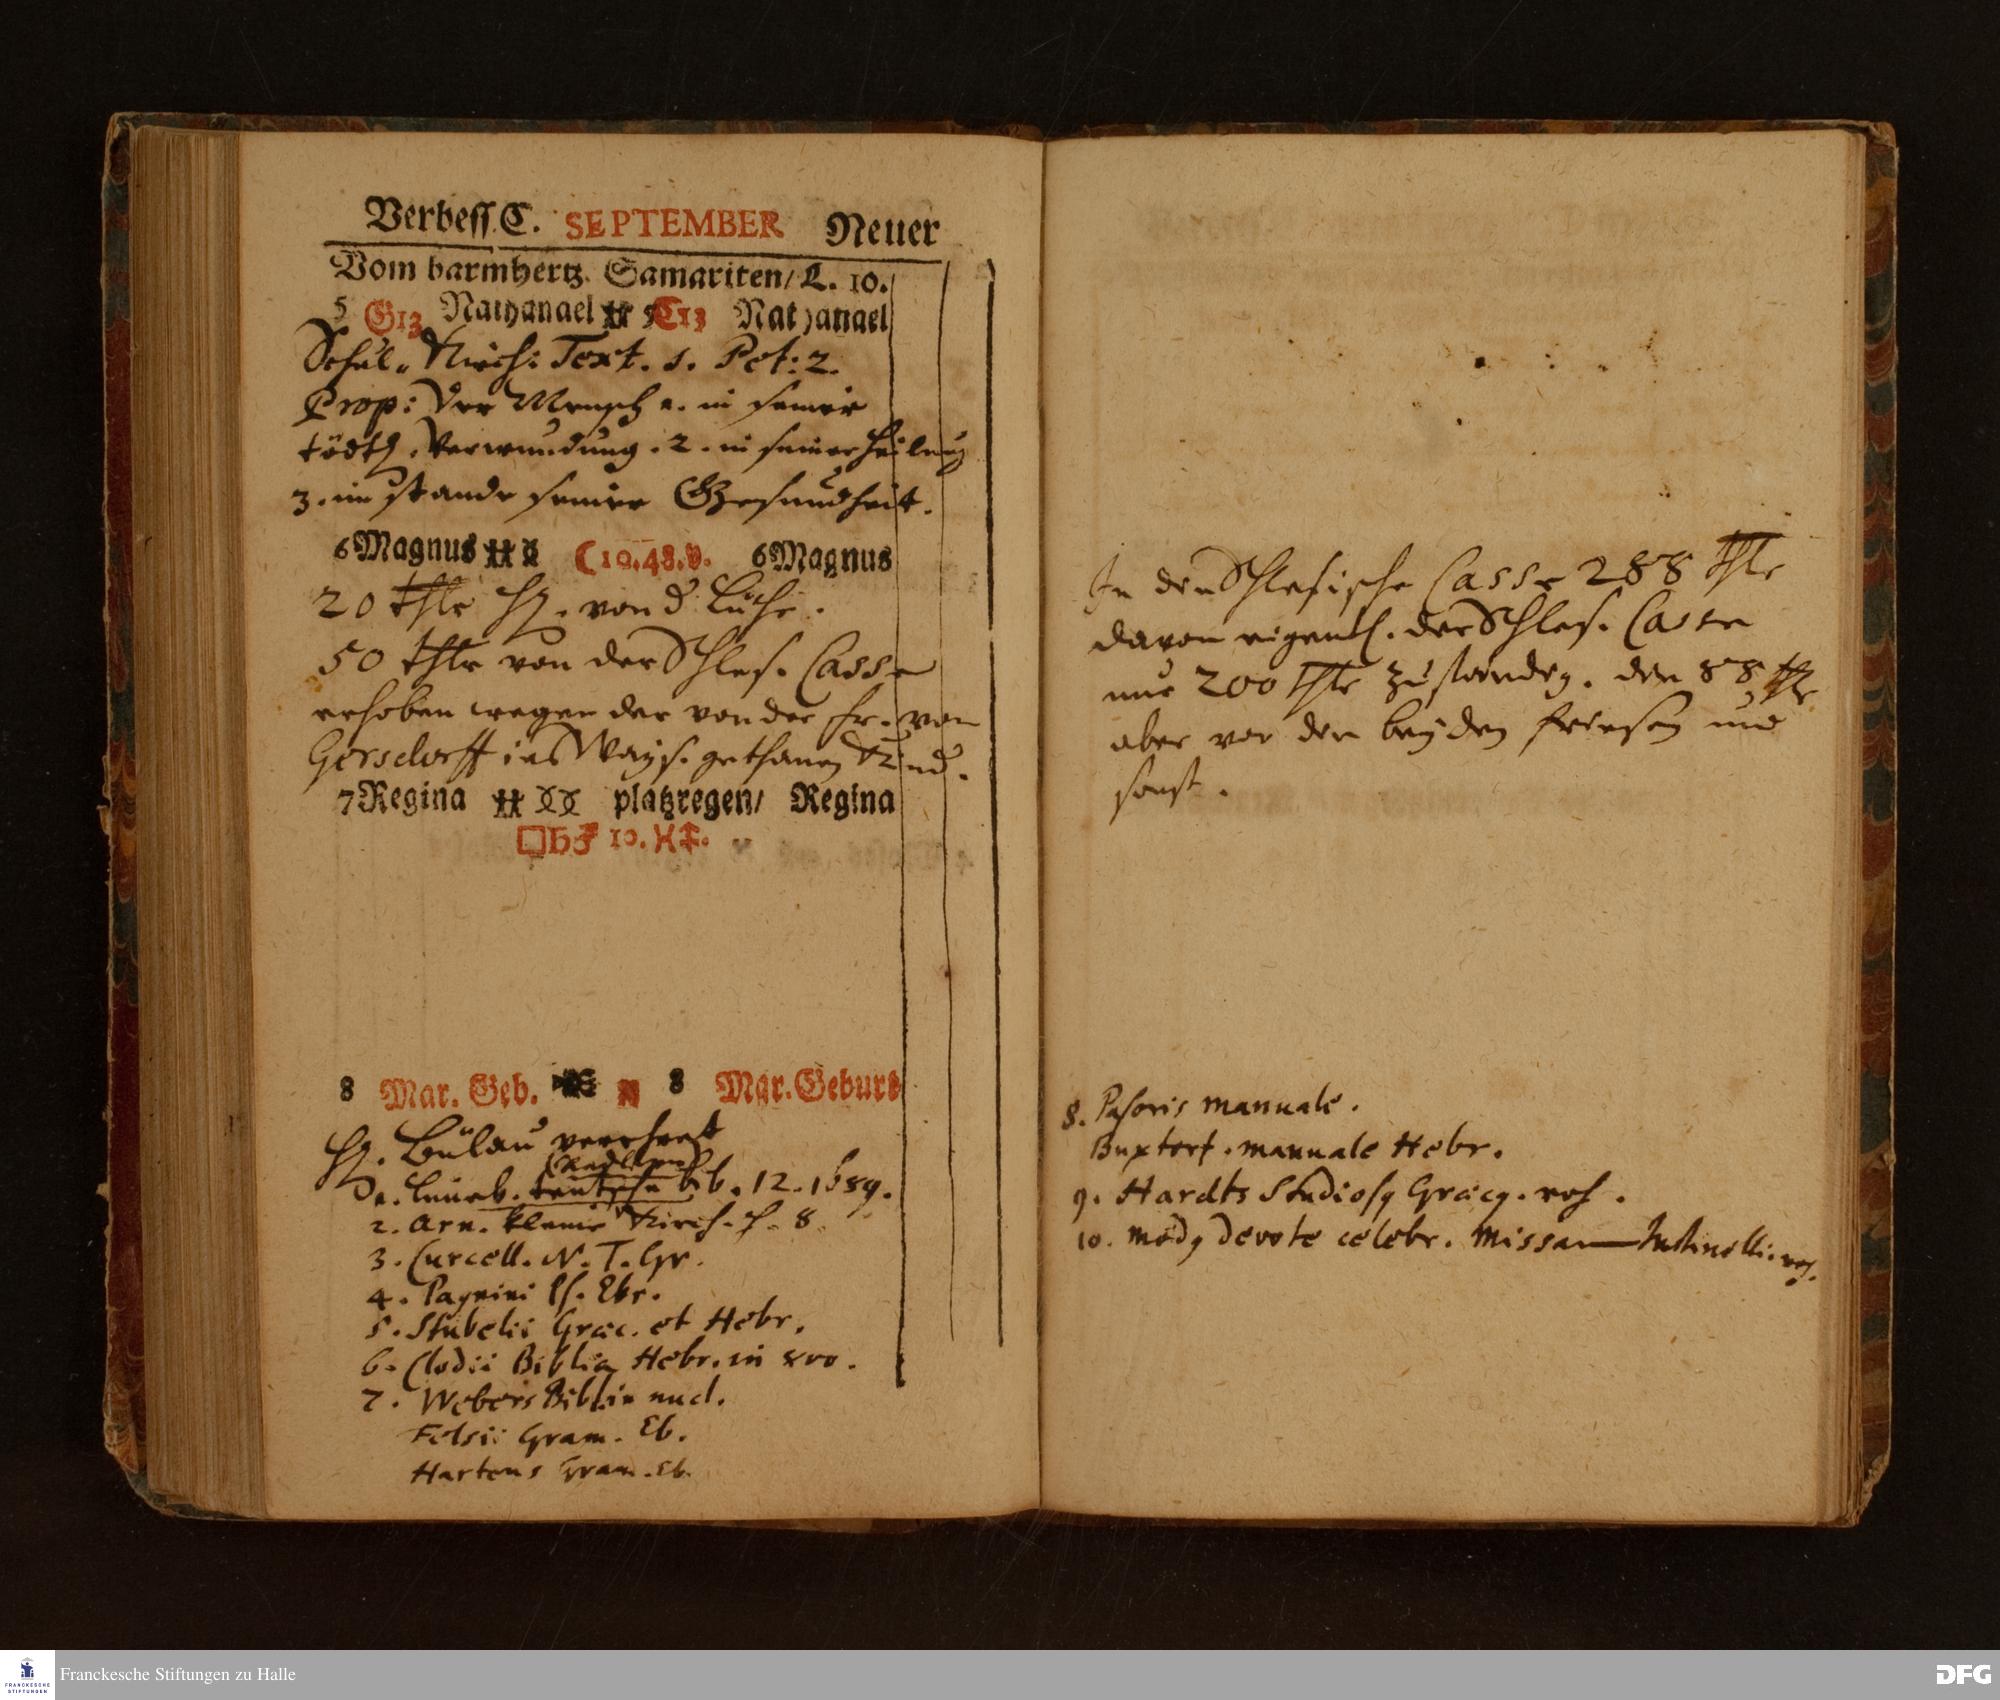 Verbeſſ. C. SEPTEMBER Neuer
Vom barmhertz. Samariten/ L. 10.
5 G13 Nathanael 5 C13 Nathanael
Schul. Kirch: Text. 1. Pet: 2.
Prop: Der Mensch 1. in seiner
tödtl. Verwundung. 2. in seiner Heilung
3. im stande seiner Gesundheit.
6 Magnus 10.48.v. 6 Magnus
20 Thlr H. von d.
50 Thlr von der Schles. Casse
erhoben wegen der von der Fr. von
Gersdorff ins Ways. gethanen Kind.
7 Regina platzregen/ Regina
□♄♂ 10.
8 Mar. Geb. 8 Mar. Geburt
H. Bülau verehret
1. Lüneb. teutsche bib. 12. 1689.
2. Arn. kleine Kirch. H. 8
3. Curcell. N. T. Gr.
4. Pagnini Ps. Ebr.
5. Stubelii Graec. et Hebr.
6. Clodii Biblia Hebr. in 8vo.
7. Webers Biblia nucl.
Felsii Gram. Eb.
Hartens Gram. Eb.
In der Schlesische Casse 288 Thlr
davon eigentl. der Schles. Casse
nur 200 Thlr zuständig. den 88 Thlr
aber vor den beyden Friesen und
sonst.
8. Pasoris manuale.
Buxtorf. manuale Hebr.
9. Hardts Studiosq Graecq. roh.
10. modq devote celebr. missam
Franckesche Stiftungen zu Halle
FRANCKESCHE
STIFTUNGEN
DFG